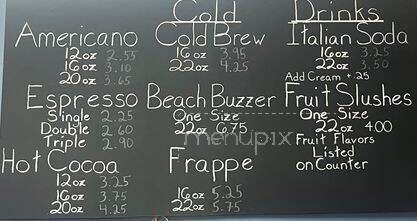 Cold
Drinks
Americano
12oz 2.55
16oz 3.10
20oz 3.65
Espresso
Single 2.25
Double 2.60
Triple 2.90
Hot Cocoa
12oz 3.25
16oz 3.75
20oz 4.25
Cold Brew
16oz 3.95
22oz 4.25
Beach Buzzer
One Size
22oz 6.75
menupix
Frappe
16oz 5.25
22oz 5.75
Italian Soda
16oz 3.25
22oz 3.50
Add Cream +.25
Fruit Slushes
One Size
22oz 4.00
Fruit Flavors
Listed
on Counter